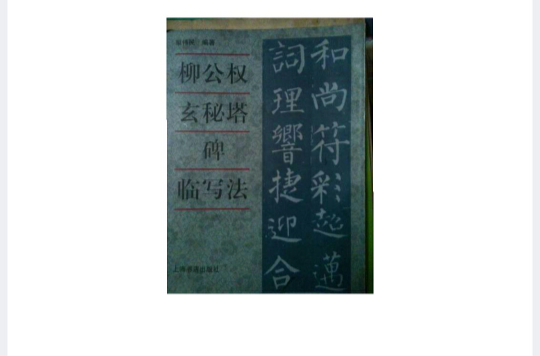 编著
柳公权
玄秘塔
碑
临写法
和尚符彩起邁
詞理響捷迎合
上海书画出版社